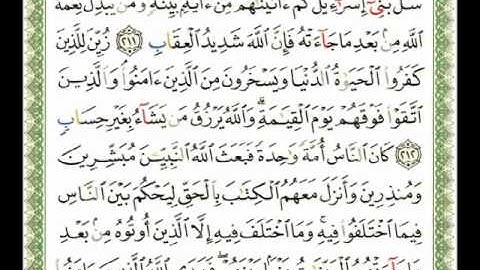 سَلْ بَنِىٓ إِسْرَٰٓءِيلَ كَمْ ءَاتَيْنَٰهُم مِّنْ ءَايَةٍۭ بَيِّنَةٍ ۗ وَمَن يُبَدِّلْ نِعْمَةَ
ٱللَّهِ مِنۢ بَعْدِ مَا جَآءَتْهُ فَإِنَّ ٱللَّهَ شَدِيدُ ٱلْعِقَابِ ٢١١ زُيِّنَ لِلَّذِينَ
كَفَرُوا۟ ٱلْحَيَوٰةُ ٱلدُّنْيَا وَيَسْخَرُونَ مِنَ ٱلَّذِينَ ءَامَنُوا۟ ۘ وَٱلَّذِينَ
ٱتَّقَوْا۟ فَوْقَهُمْ يَوْمَ ٱلْقِيَٰمَةِ ۗ وَٱللَّهُ يَرْزُقُ مَن يَشَآءُ بِغَيْرِ حِسَابٍ
٢١٢ كَانَ ٱلنَّاسُ أُمَّةً وَٰحِدَةً فَبَعَثَ ٱللَّهُ ٱلنَّبِيِّۦنَ مُبَشِّرِينَ
وَمُنذِرِينَ وَأَنزَلَ مَعَهُمُ ٱلْكِتَٰبَ بِٱلْحَقِّ لِيَحْكُمَ بَيْنَ ٱلنَّاسِ
فِيمَا ٱخْتَلَفُوا۟ فِيهِ ۚ وَمَا ٱخْتَلَفَ فِيهِ إِلَّا ٱلَّذِينَ أُوتُوهُ مِنۢ بَعْدِ